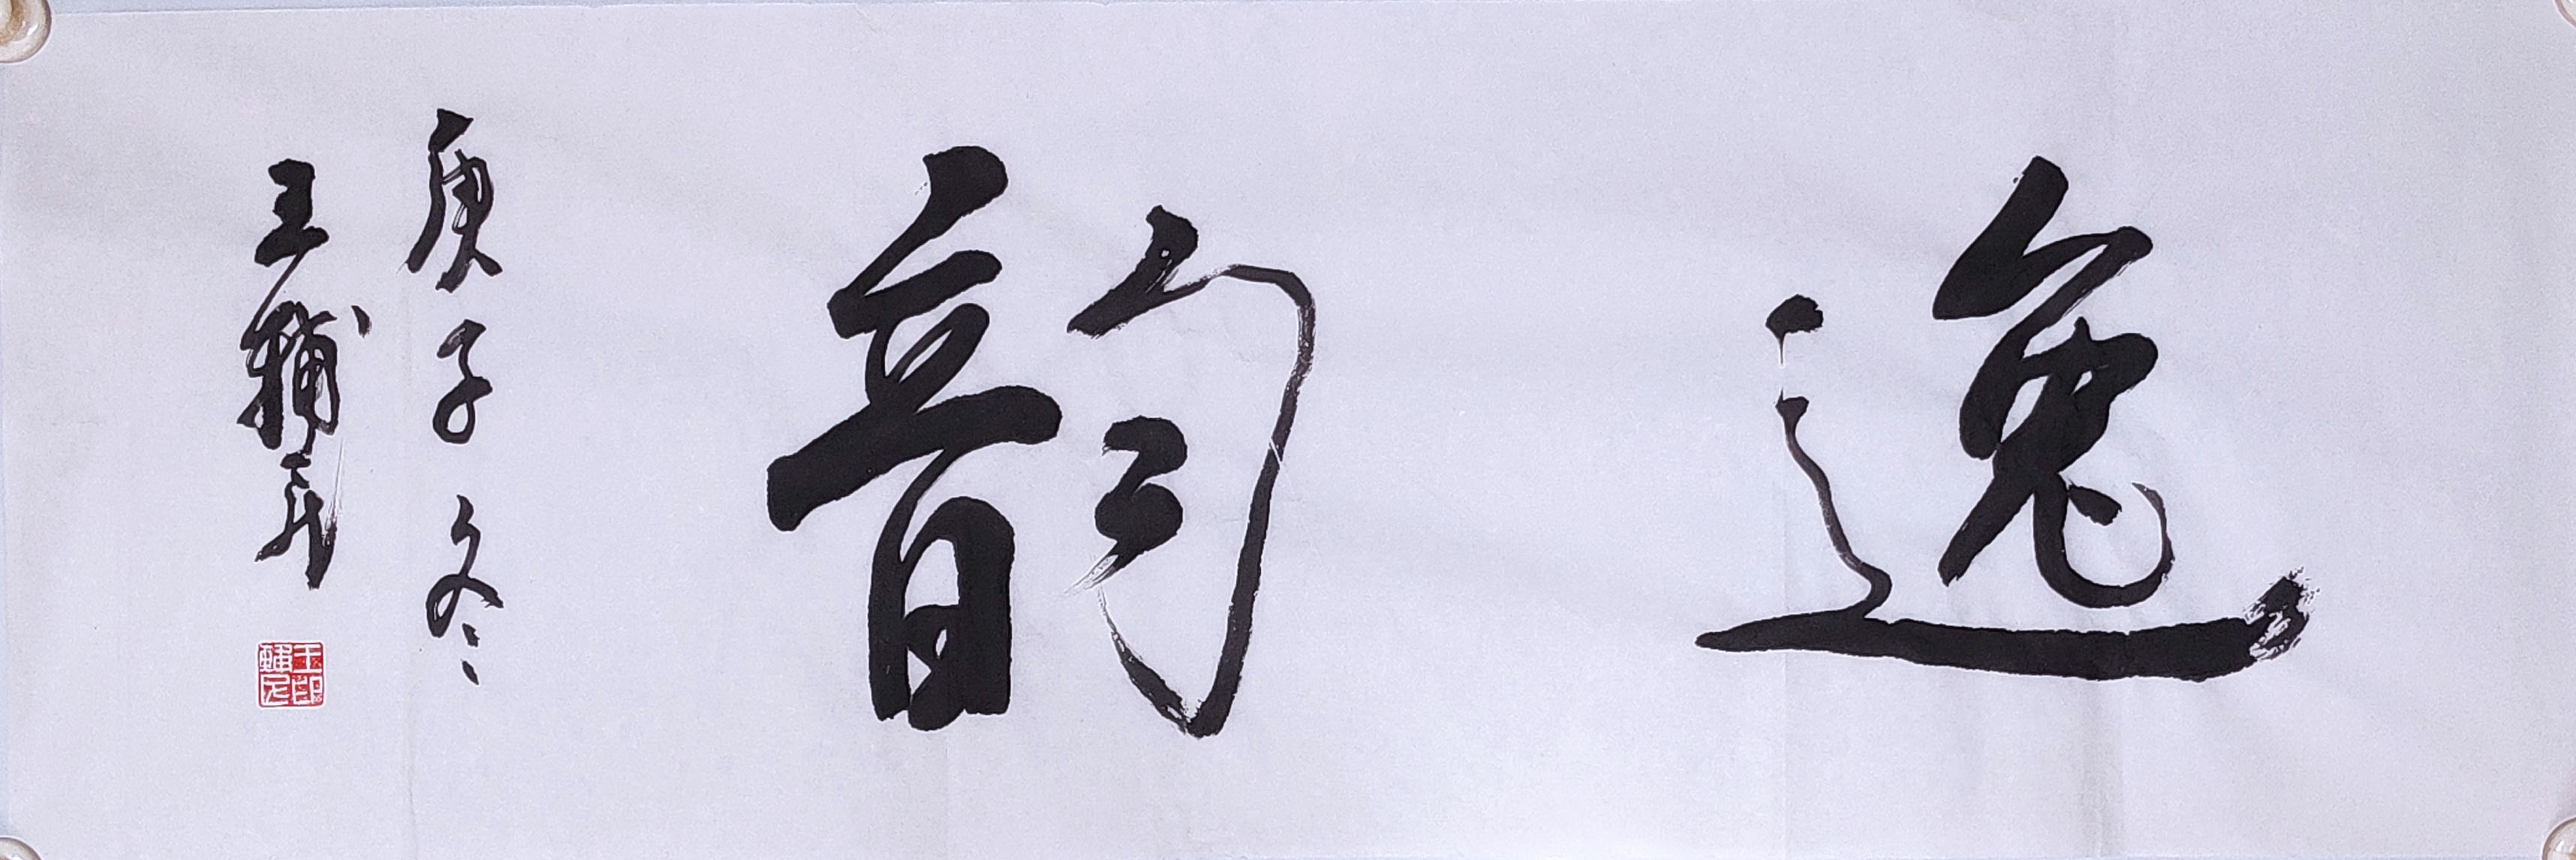 逸韵
庚子冬
王辅民
王印
輔民